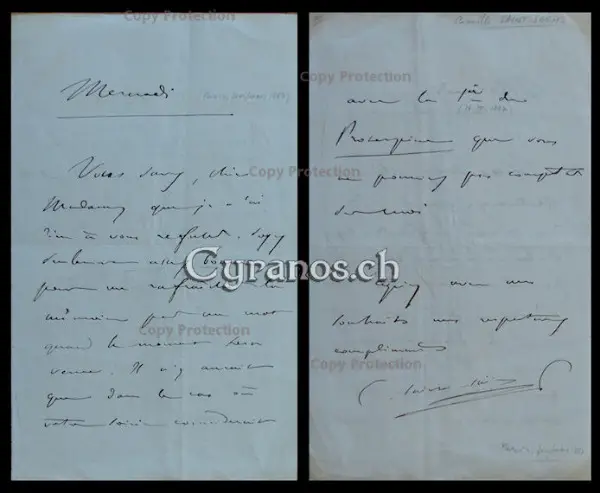 Mercredi
Vous savez, chère
Madame, que je n'ai
rien à vous refuser. Soyez
seulement assez bonne
pour me rafraîchir la
mémoire par un mot
quand le moment sera
venu. Il n'y aurait
que dans le cas où
votre soirée coïnciderait
avec la 1ère de
Proserpine que vous
ne pourriez pas compter
sur moi
Agréez avec mes
souhaits mes respectueux
compliments
C. Saint-Saëns
Camille SAINT-SAENS
Cyranos.ch
Copy Protection
Copy Protection
Copy Protection
Copy Protection
Copy Protection
Copy Protection